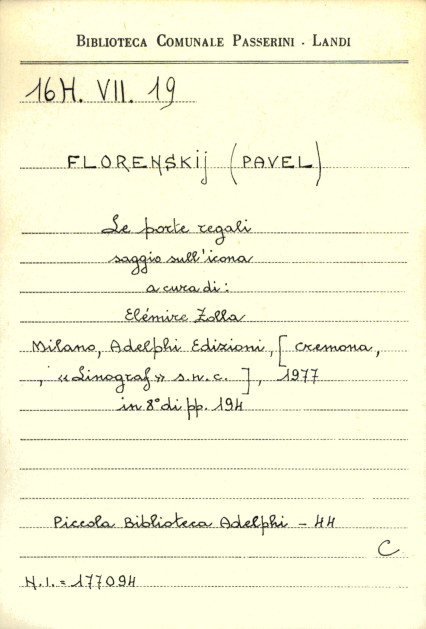 BIBLIOTECA COMUNALE PASSERINI - LANDI
16H. VII. 19
FLORENSKIJ (PAVEL)
Le porte regali
saggio sull'icona
a cura di:
Elémire Zolla
Milano, Adelphi Edizioni, [Cremona,
, «Linograf» s.n.c.], 1977
in 8° di pp. 194
Piccola Biblioteca Adelphi - 44
C
N.I. = 177094